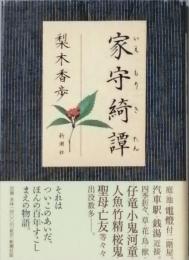 家守綺譚
いえもりきたん
梨木香歩
新潮社
庭・池・電燈付二階屋。
汽車駅・銭湯近接。
四季折々、草・花・鳥・獣・
仔竜・小鬼・河童・
人魚・竹精・桜鬼・
聖母・亡友等々
出没数多……。
それは
ついこのあいだ、
ほんの百年すこし
まえの物語。